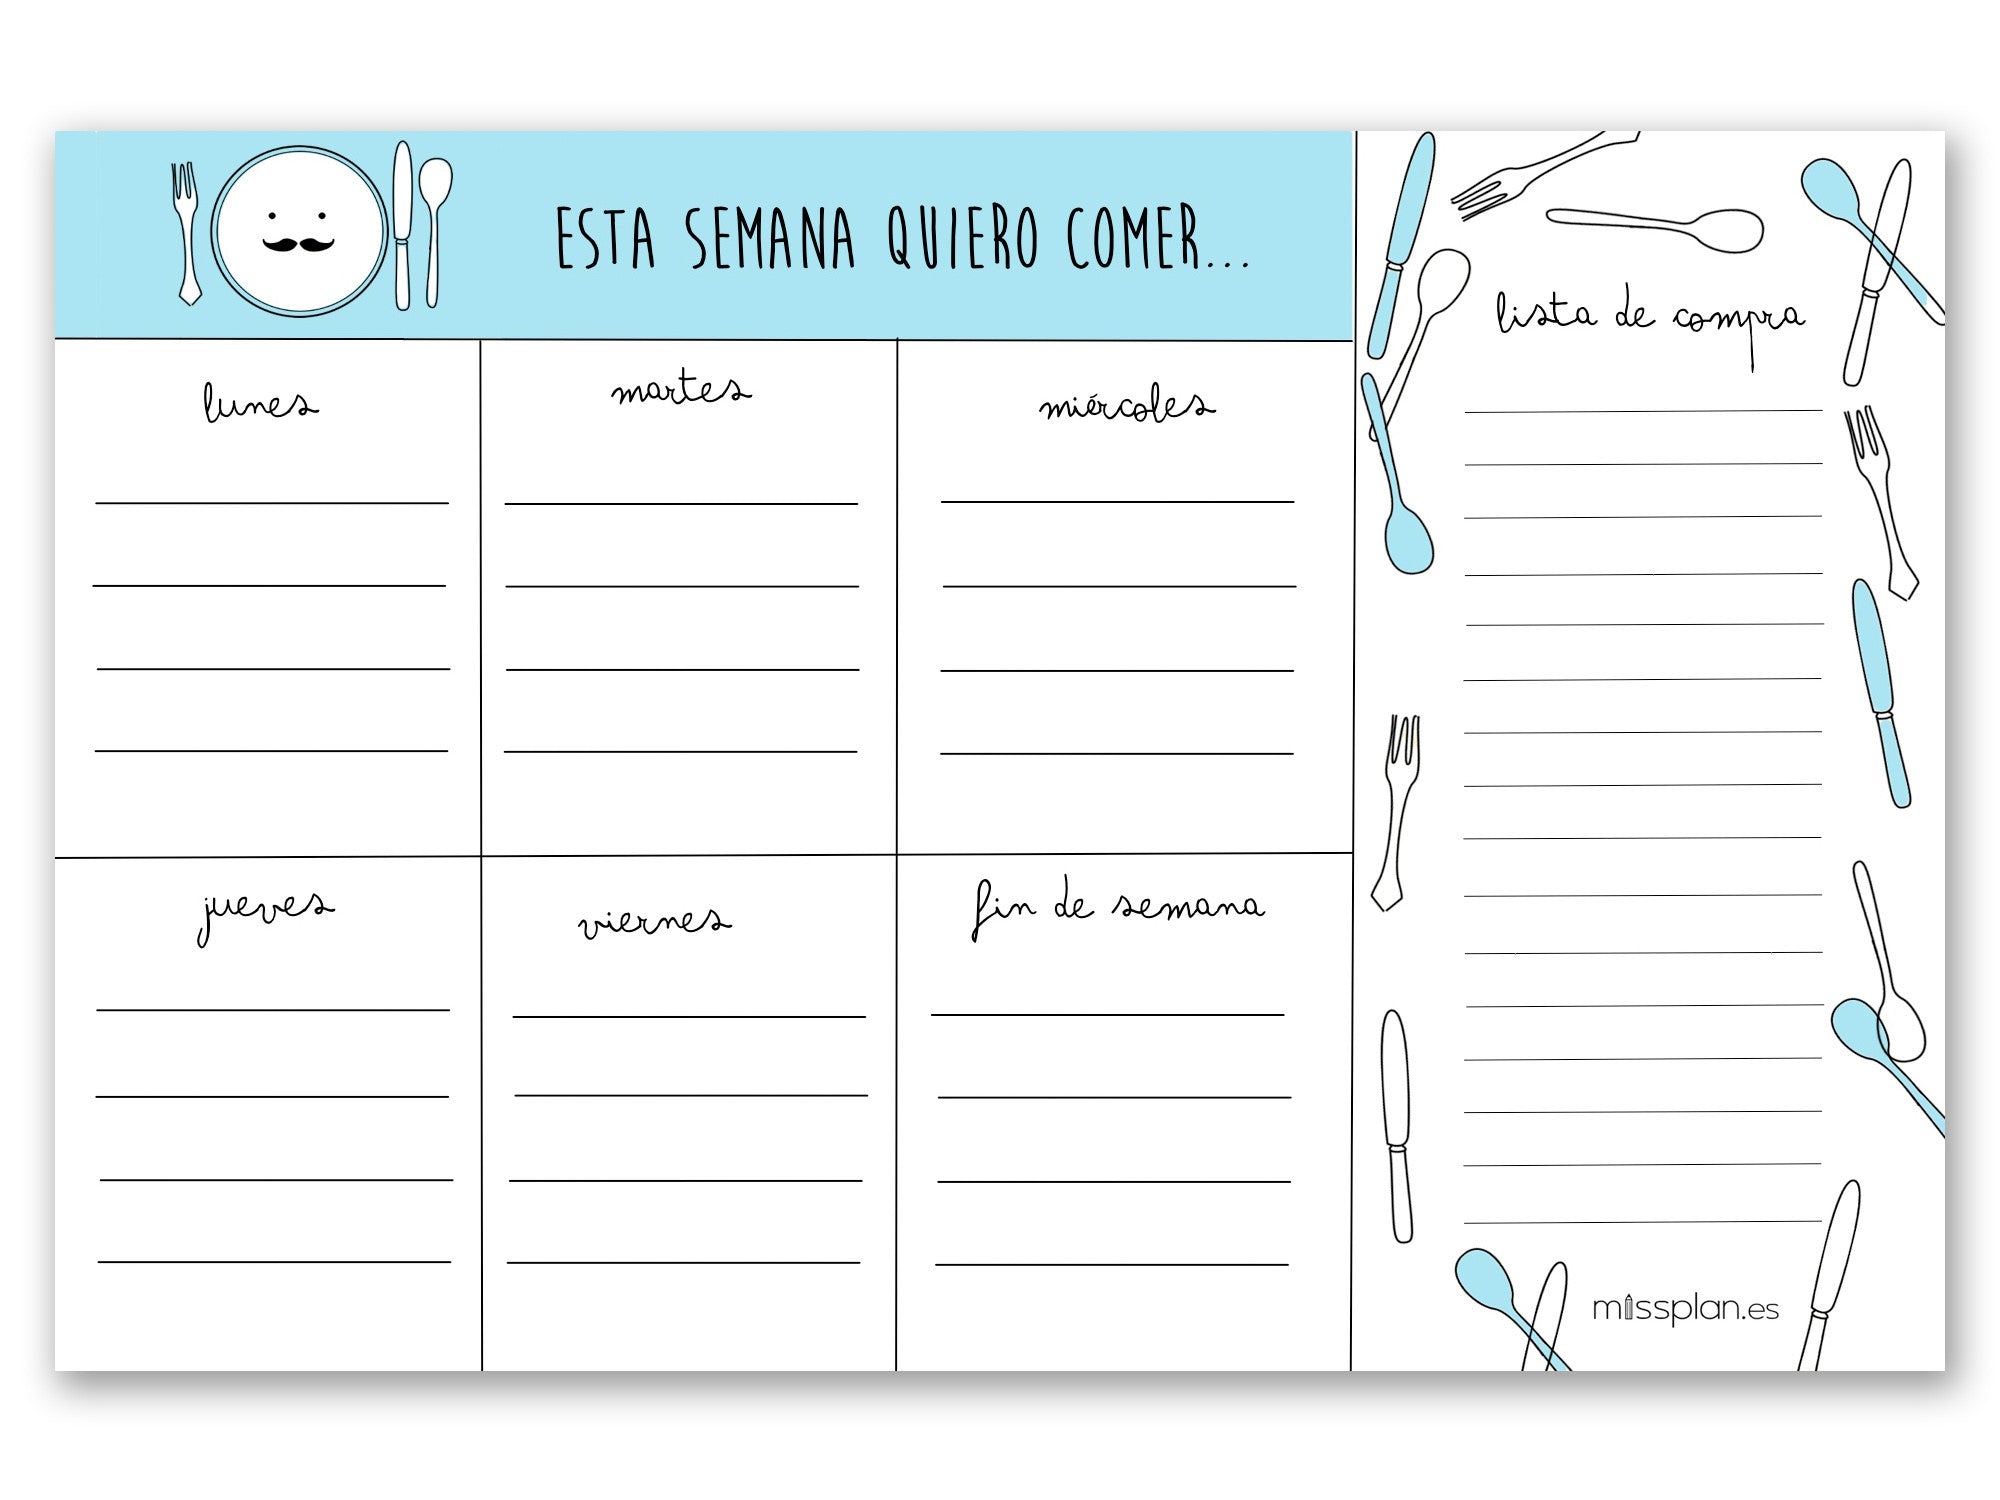 ESTA SEMANA QUIERO COMER...
lunes
martes
miércoles
jueves
viernes
fin de semana
lista de compra
missplan.es